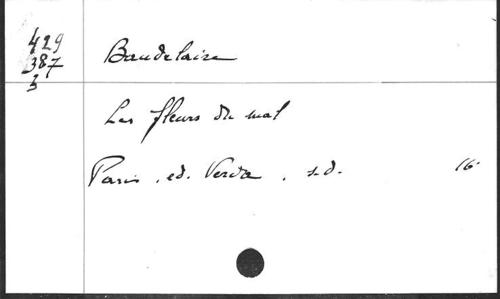 429
387
3
Baudelaire
Les fleurs du mal
Paris. ed. Verda. s.d. 16°